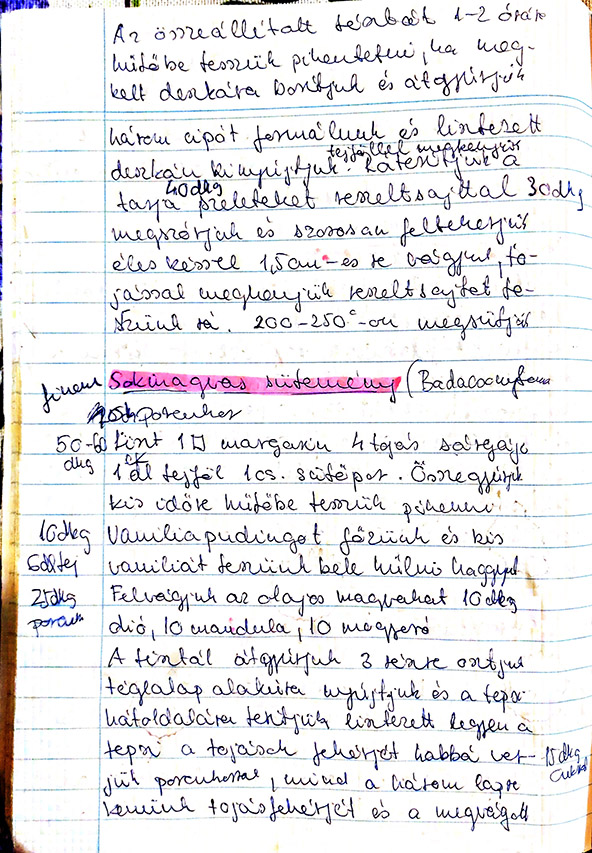 Az összeállított tésztát 1-2 órára
hűtőbe tesszük pihentetni, ha meg-
kelt deszkára borítjuk és átgyúrjuk
három cipót formálunk és lisztezett
tejföllel megkenjük
deszkán kinyújtjuk. Ráterítjük a
40dkg
tarja szeleteket reszeltsajttal 30dkg
megszórjuk és szorosan feltekerjük
éles késsel 1,5cm-es re vágjuk, to-
jással megkenjük reszeltsajtot te-
szünk rá. 200-250°-on megsütjük
finom Sokmagvas sütemény (Badacsony
porcukor
50-60 Liszt 1 margarin 4 tojás sárgája
dkg
1 dl tejföl 1cs. sütőpor. Összegyúrjuk
kis időre hűtőbe tesszük pihenni
10dkg Vaniliapudingot főzünk és kis
6dl tej vaniliát teszünk bele hűlni hagyjuk
25dkg Felvágjuk az olajos magvakat 10dkg
dió, 10 mandula, 10 mogyoró
A tésztát átgyúrjuk 3 részre osztjuk
téglalap alakúra nyújtjuk és a tepsi
hátoldalára terítjük lisztezett legyen a
tepsi a tojások fehérjét habbá ver- 15dkg
cukor
jük porcukorral, mind a három lapra
kenünk tojásfehérjét és a megvágott